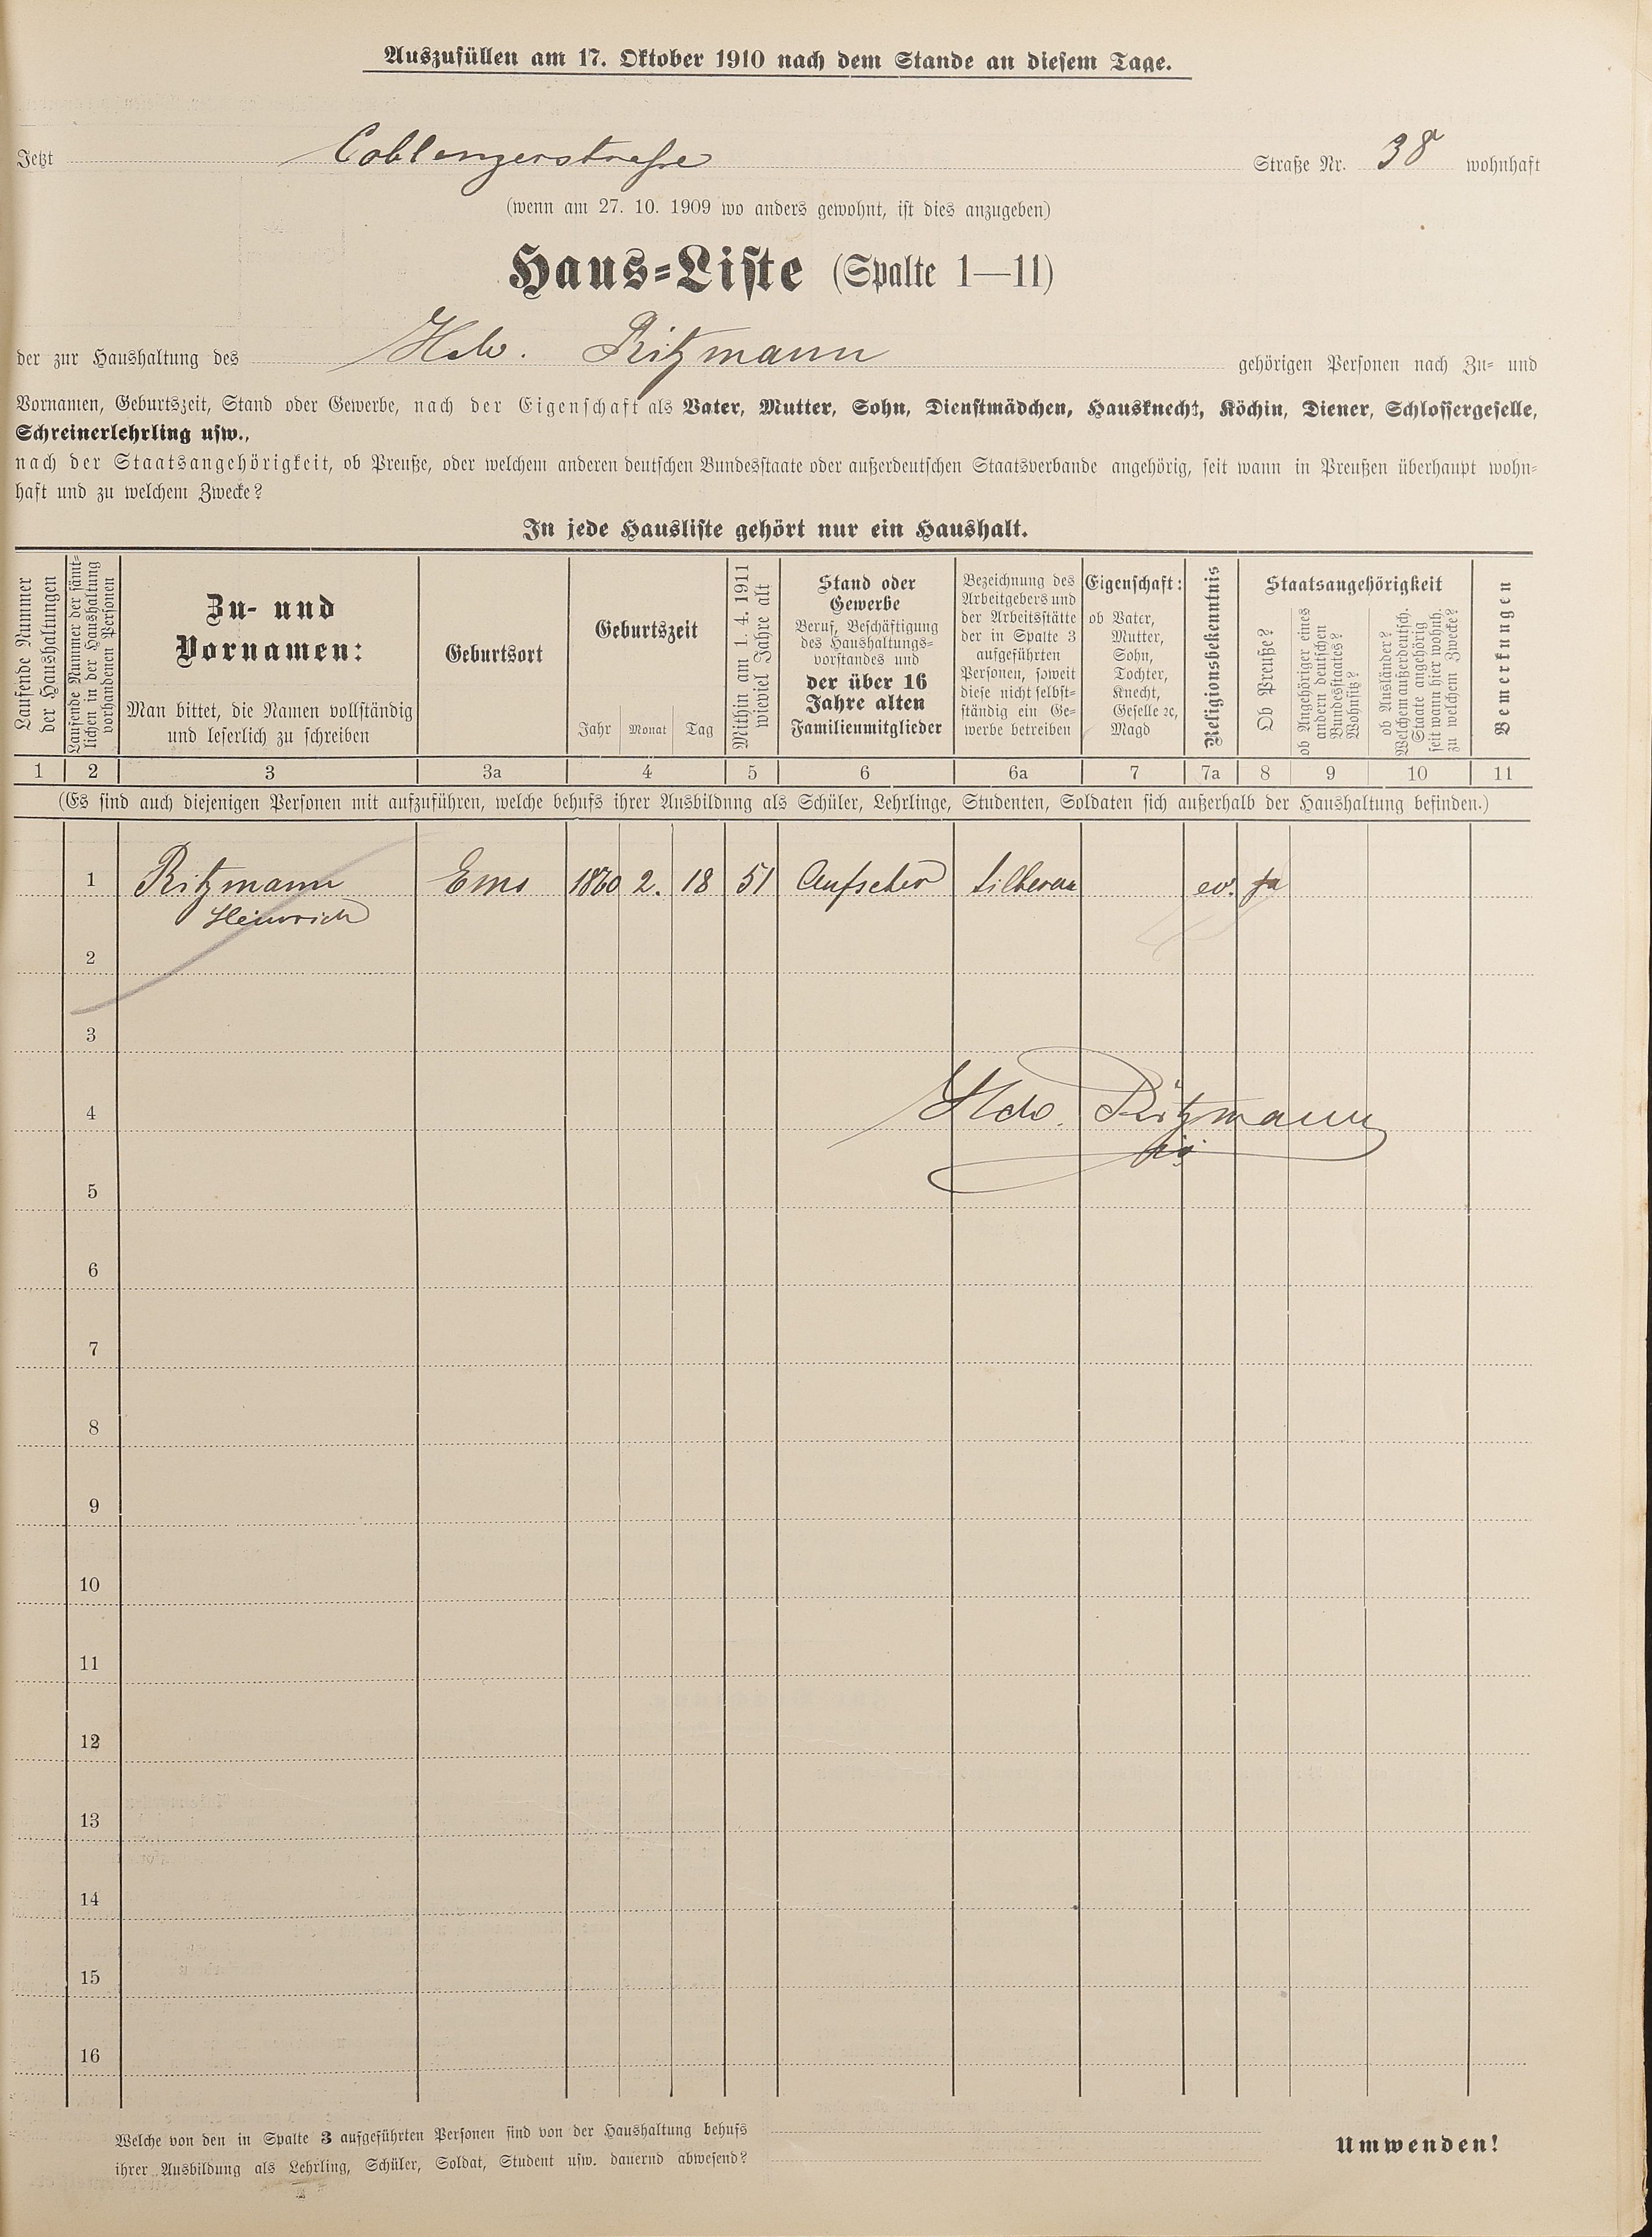 Auszufüllen am 17. Oktober 1910 nach dem Stande an diesem Tage.
Jetzt Coblenzerstraße Straße Nr. 38 wohnhaft
(wenn am 27. 10. 1909 wo anders gewohnt, ist dies anzugeben)
Haus-Liste (Spalte 1—11)
der zur Haushaltung des Hch. Ritzmann gehörigen Personen nach Zu- und
Vornamen, Geburtszeit, Stand oder Gewerbe, nach der Eigenschaft als Vater, Mutter, Sohn, Dienstmädchen, Hausknecht, Köchin, Diener, Schlossergeselle,
Schreinerlehrling usw.,
nach der Staatsangehörigkeit, ob Preuße, oder welchem anderen deutschen Bundesstaate oder außerdeutschen Staatsverbande angehörig, seit wann in Preußen überhaupt wohn-
haft und zu welchem Zwecke?
In jede Hausliste gehört nur ein Haushalt.
Laufende Nummer
der Haushaltungen
Laufende Nummer der sämt-
lichen in der Haushaltung
vorhandenen Personen
Zu- und
Vornamen:
Man bittet, die Namen vollständig
und leserlich zu schreiben
Geburtsort
Geburtszeit
Jahr Monat Tag
Mithin am 1. 4. 1911
wieviel Jahre alt
Stand oder
Gewerbe
Beruf, Beschäftigung
des Haushaltungs-
vorstandes und
der über 16
Jahre alten
Familienmitglieder
Bezeichnung des
Arbeitgebers und
der Arbeitsstätte
der in Spalte 3
aufgeführten
Personen, soweit
diese nicht selbst-
ständig ein Ge-
werbe betreiben
Eigenschaft:
ob Vater,
Mutter,
Sohn,
Tochter,
Knecht,
Geselle ꝛc,
Magd
Religionsbekenntnis
Staatsangehörigkeit
Ob Preuße?
ob Angehöriger eines
andern deutschen
Bundesstaates?
Wohnsitz?
ob Ausländer?
Welchem außerdeutsch.
Staate angehörig
seit wann hier wohnh.
zu welchem Zwecke?
Bemerkungen
1 2 3 3a 4 5 6 6a 7 7a 8 9 10 11
(Es sind auch diejenigen Personen mit aufzuführen, welche behufs ihrer Ausbildung als Schüler, Lehrlinge, Studenten, Soldaten sich außerhalb der Haushaltung befinden.)
1 Ritzmann Ems 1860 2. 18 51 Aufseher Silberau ev. ja
Heinrich
2
3
4 Hch. Ritzmann
5
6
7
8
9
10
11
12
13
14
15
16
Welche von den in Spalte 3 aufgeführten Personen sind von der Haushaltung behufs
ihrer Ausbildung als Lehrling, Schüler, Soldat, Student usw. dauernd abwesend?
Umwenden!